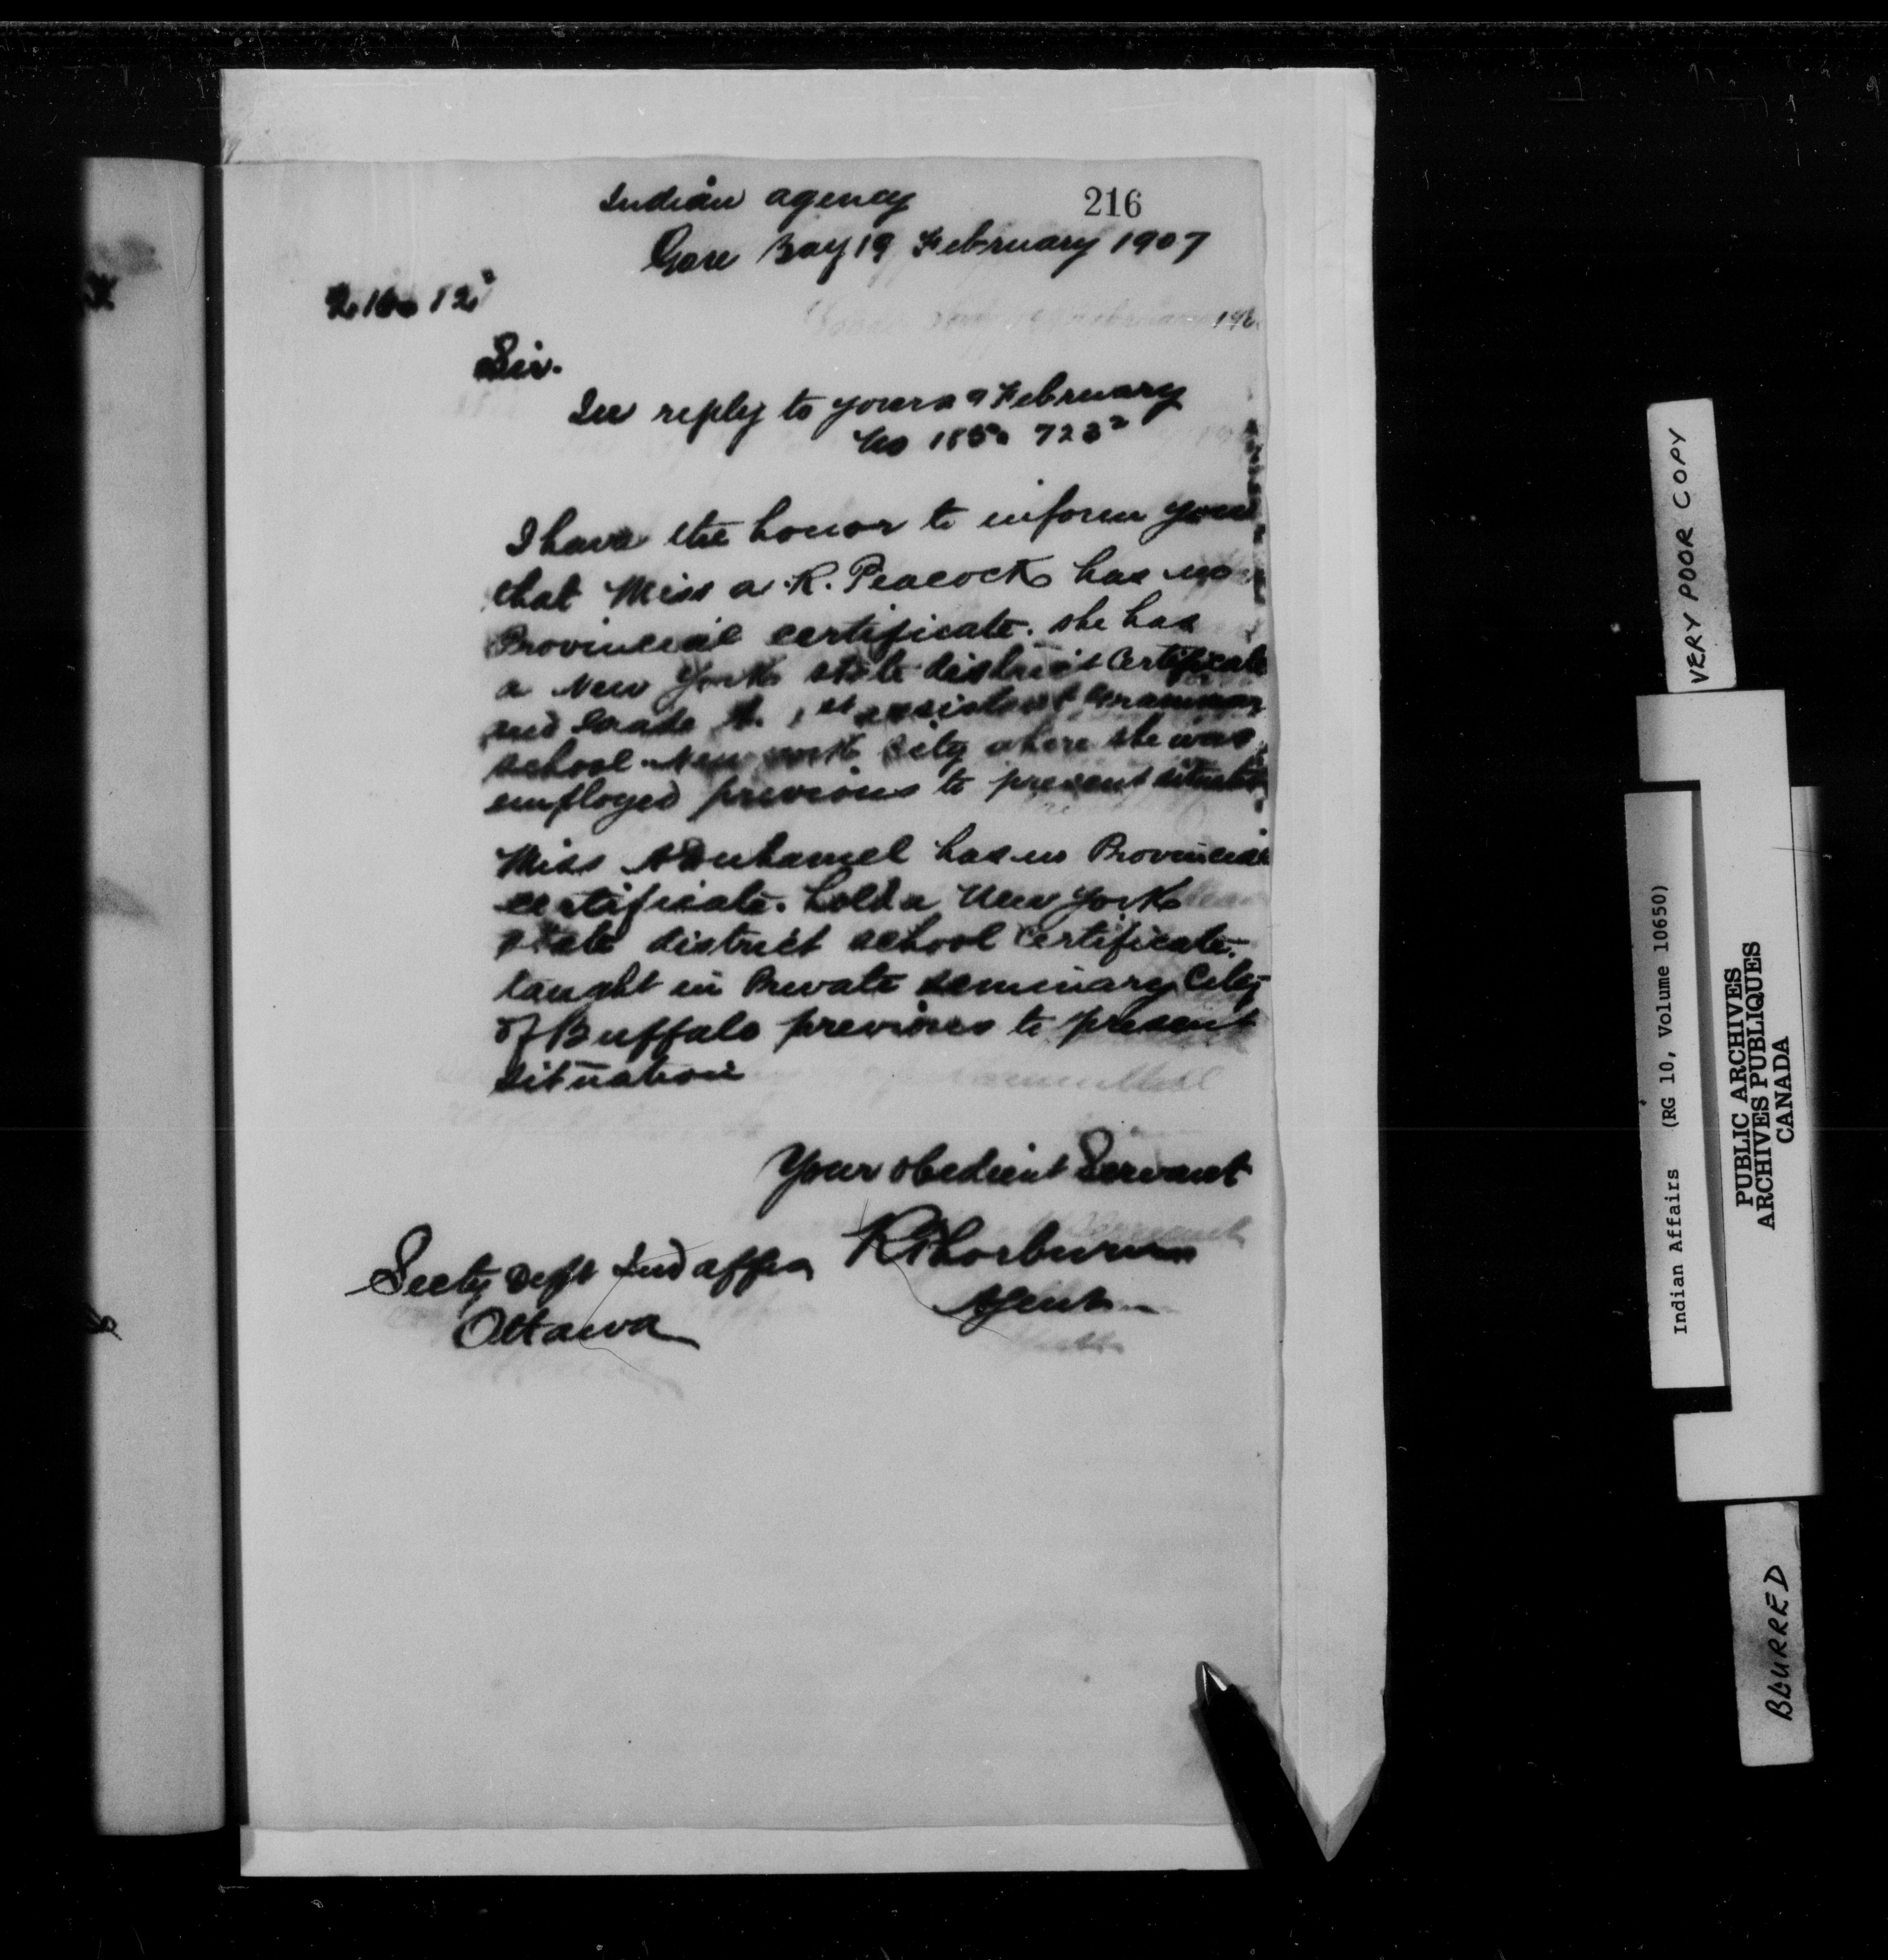 216
Indian agency
Gore Bay 19 February 1907
190
Sir.
In reply to yours 9 February
No 185. 723²
I have the honor to inform you
that Miss A. K. Peacock has no
Provincial certificate. she has
a New York state district Certificate
and Grade A. 1st assistant Grammar
school New York City where she was
employed previous to present situation
Miss Duhamel has no Provincial
certificate. holds a New York
state district school certificate.
taught in Private seminary City
of Buffalo previous to present
situation
Your obedient Servant
R Thorburn
Agent
Secty Dept Ind affrs
Ottawa
VERY POOR COPY
Indian Affairs (RG 10, Volume 10650)
PUBLIC ARCHIVES
ARCHIVES PUBLIQUES
CANADA
BLURRED